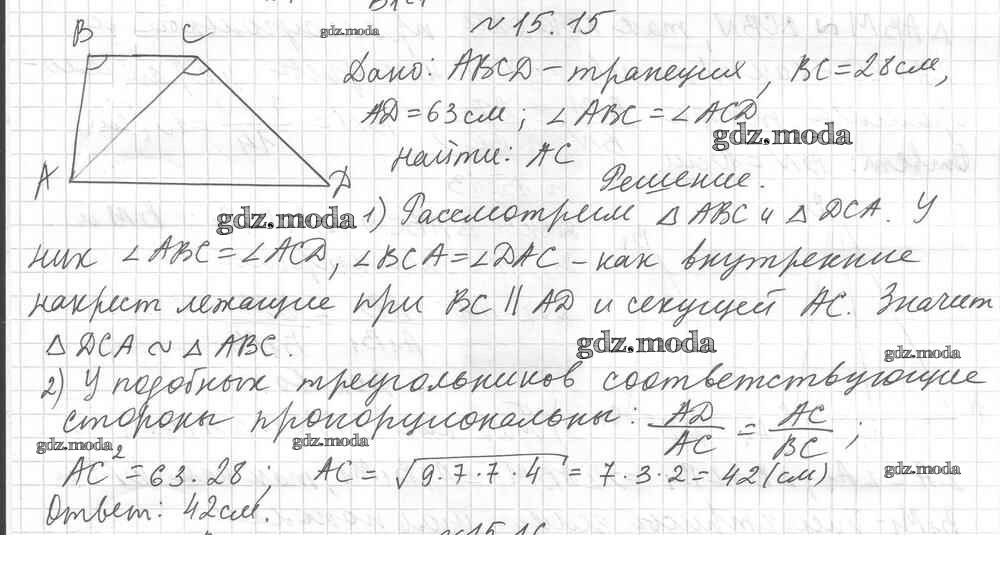 № 15.15
gdz.moda
B C
Дано: ABCD – трапеция, BC = 28 см,
AD = 63 см; ∠ABC = ∠ACD
gdz.moda
Найти: AC
A D
Решение.
gdz.moda
1) Рассмотрим △ ABC и △ DCA. У
них ∠ABC = ∠ACD, ∠BCA = ∠DAC – как внутренние
накрест лежащие при BC || AD и секущей AC. Значит
△ DCA ~ △ ABC.
gdz.moda
gdz.moda
2) У подобных треугольников соответствующие
стороны пропорциональны: AD/AC = AC/BC;
gdz.moda
gdz.moda
AC² = 63·28; AC = √9·7·7·4 = 7·3·2 = 42 (см)
gdz.moda
Ответ: 42 см.